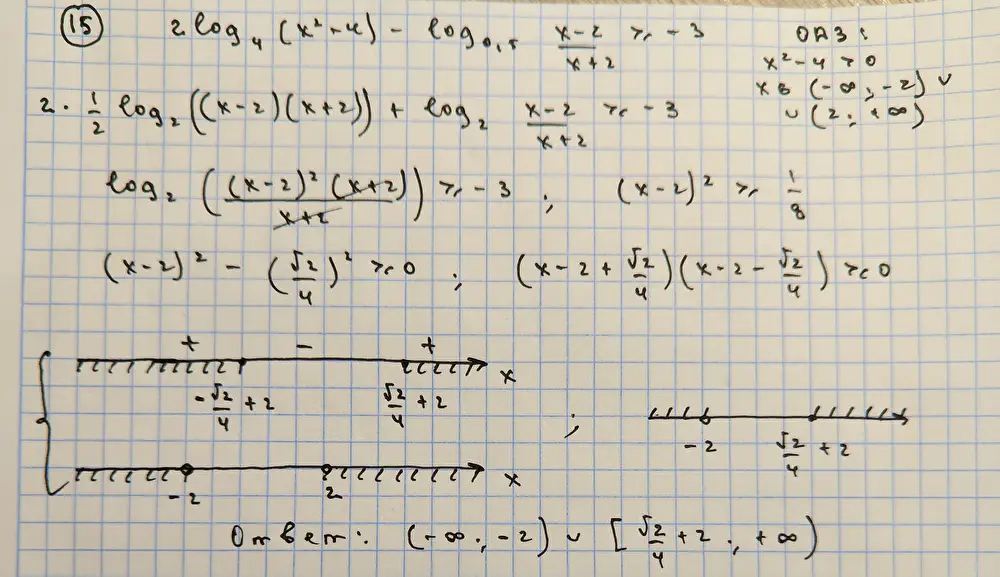 15 2 log₄ (x² - 4) - log₀,₅ (x-2)/(x+2) ⩾ -3 ОДЗ:
x² - 4 > 0
x ∈ (-∞; -2) ∪
∪ (2; +∞)
2 · 1/2 log₂ ((x-2)(x+2)) + log₂ (x-2)/(x+2) ⩾ -3
log₂ ((x-2)² (x+2)/(x+2)) ⩾ -3 ; (x-2)² ⩾ 1/8
(x-2)² - (√2/4)² ⩾ 0 ; (x-2+√2/4)(x-2-√2/4) ⩾ 0
+ - +
x
-√2/4 + 2 √2/4 + 2
;
-2 √2/4 + 2
x
-2 2
Ответ: (-∞; -2) ∪ [√2/4 + 2; +∞)